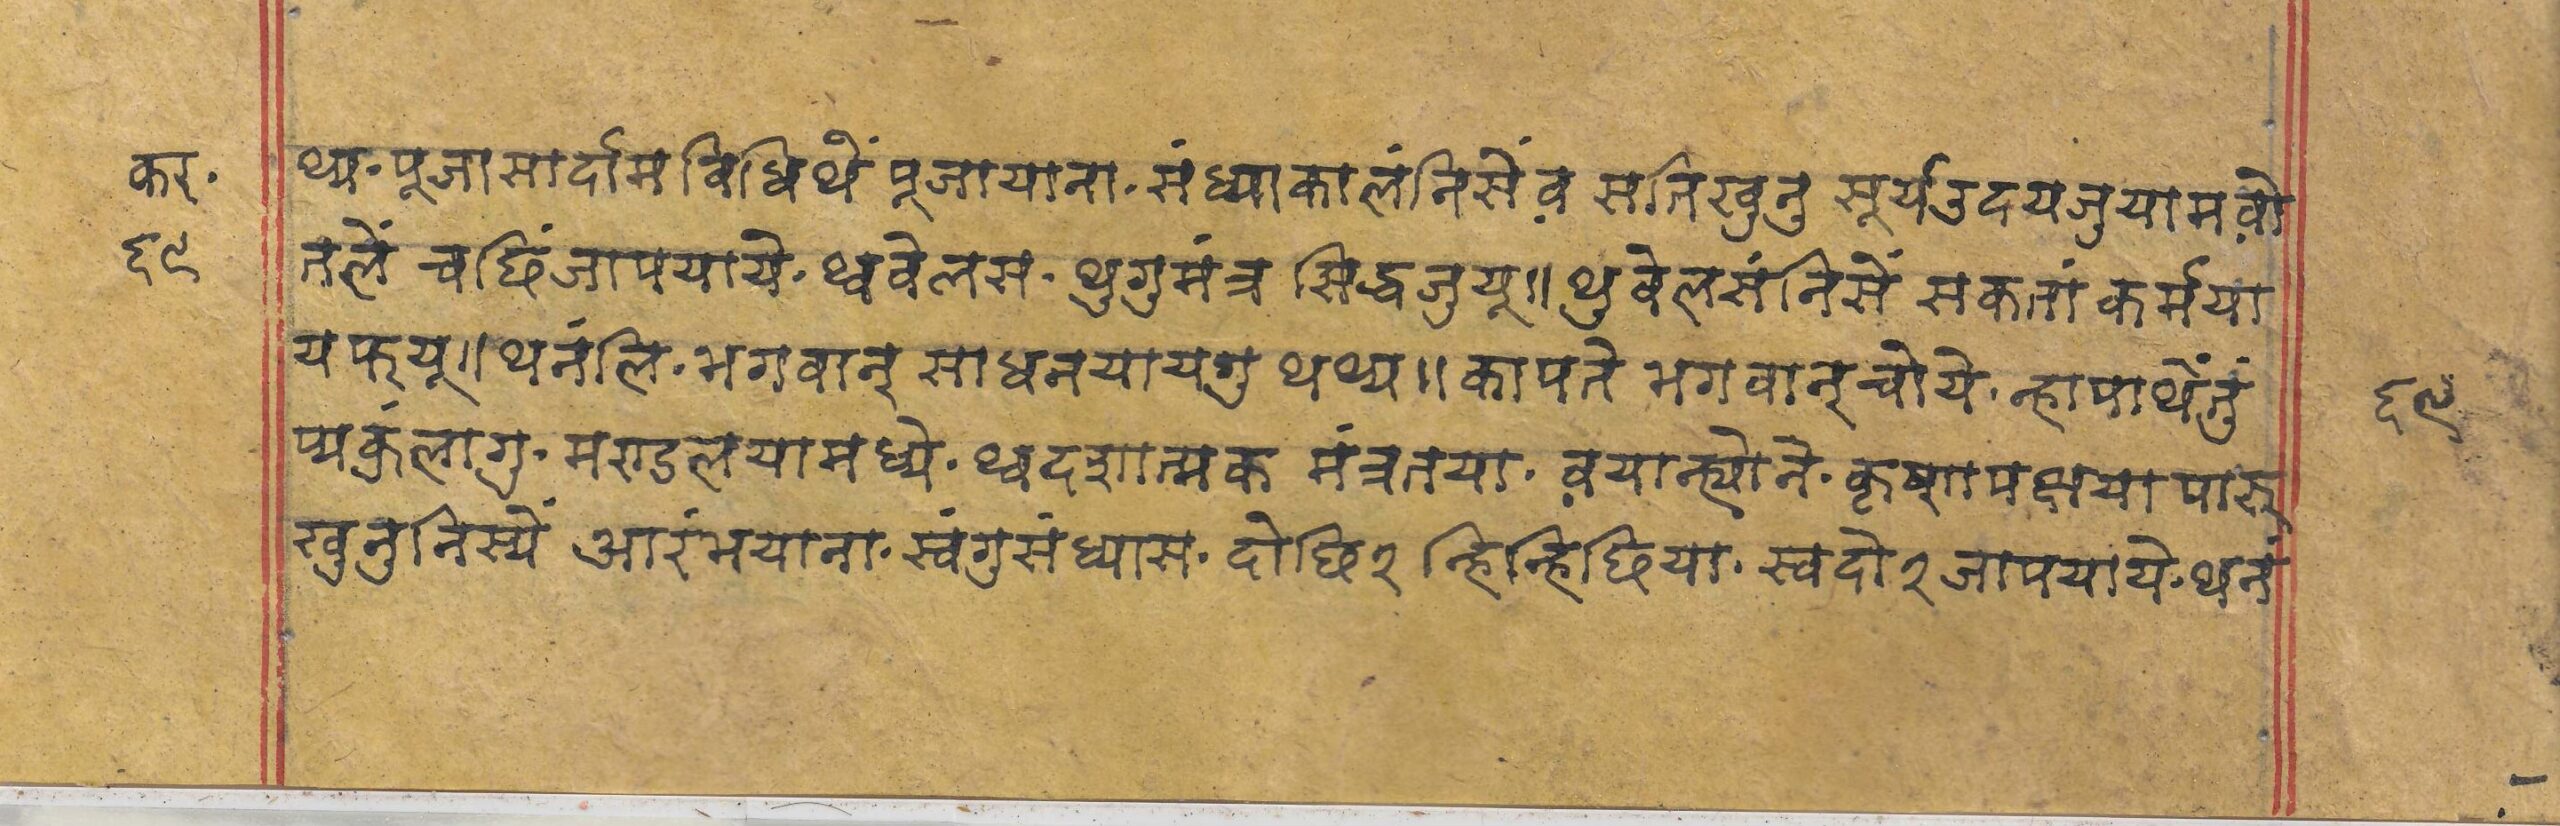 कर. थ्य. पूजासार्दामविधिथें पूजायाना. संध्याकालंनिसें व़ सतिखुनु सूर्यउदयजुयामव़ो
६९ तलें चछिंजापयाये. थ्ववेलस. थुगुमंत्र सिद्धजुयू॥ थुवेलसंनिसें सकतां कर्मया
यफयू॥ थनंलि. भगवान् साधनयायगु थथ्य॥ कापते भगवान्चोये. न्हापाथेंतुं ६९
प्यकुंलागु. मण्डलयामध्ये. थ्वदशात्मक मंत्रतया. व़यान्ह्योने. कृष्णपक्षयापारु
खुनुनिस्यें आरंभयाना. स्वंगुसंध्यास. दोछि२ न्हिन्हिछिया. स्वदो२ जापयाये. थनं